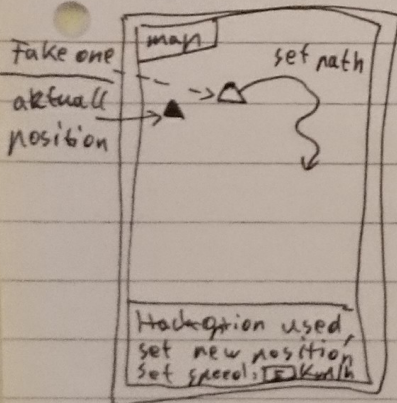 map
set path
Fake one
aktuall
position
Hackoption used,
set new position
set speed: 5 Km/h